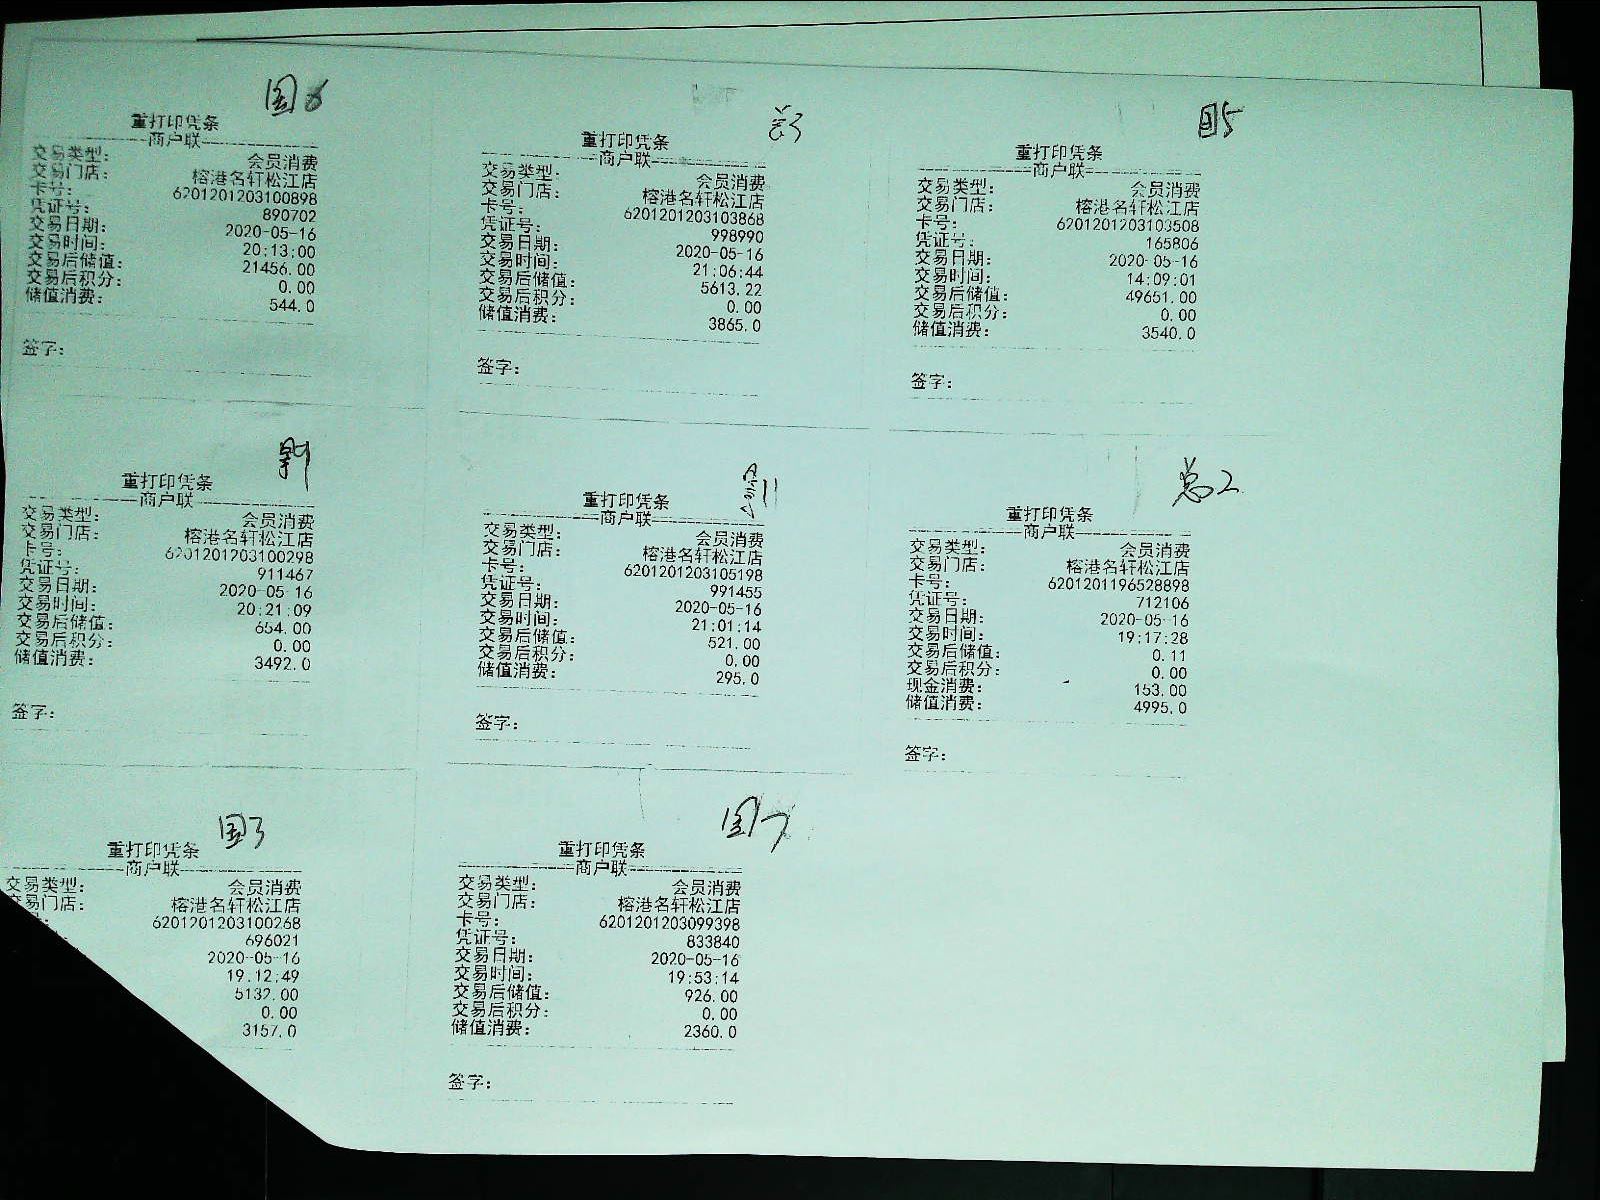 国6
重打印凭条
商户联
交易类型: 会员消费
交易门店: 榕港名轩松江店
卡号: 6201201203100898
凭证号: 890702
交易日期: 2020-05-16
交易时间: 20:13:00
交易后储值: 21456.00
交易后积分: 0.00
储值消费: 544.0
签字:
总3
重打印凭条
商户联
交易类型: 会员消费
交易门店: 榕港名轩松江店
卡号: 6201201203103868
凭证号: 998990
交易日期: 2020-05-16
交易时间: 21:06:44
交易后储值: 5613.22
交易后积分: 0.00
储值消费: 3865.0
签字:
国5
重打印凭条
商户联
交易类型: 会员消费
交易门店: 榕港名轩松江店
卡号: 6201201203103508
凭证号: 165806
交易日期: 2020-05-16
交易时间: 14:09:01
交易后储值: 49651.00
交易后积分: 0.00
储值消费: 3540.0
签字:
重打印凭条
商户联
交易类型: 会员消费
交易门店: 榕港名轩松江店
卡号: 6201201203100298
凭证号: 911467
交易日期: 2020-05-16
交易时间: 20:21:09
交易后储值: 654.00
交易后积分: 0.00
储值消费: 3492.0
签字:
重打印凭条
商户联
交易类型: 会员消费
交易门店: 榕港名轩松江店
卡号: 6201201203105198
凭证号: 991455
交易日期: 2020-05-16
交易时间: 21:01:14
交易后储值: 521.00
交易后积分: 0.00
储值消费: 295.0
签字:
总2
重打印凭条
商户联
交易类型: 会员消费
交易门店: 榕港名轩松江店
卡号: 6201201196528898
凭证号: 712106
交易日期: 2020-05-16
交易时间: 19:17:28
交易后储值: 0.11
交易后积分: 0.00
现金消费: 153.00
储值消费: 4995.0
签字:
国3
重打印凭条
商户联
交易类型: 会员消费
交易门店: 榕港名轩松江店
号: 6201201203100268
696021
2020-05-16
19:12:49
5132.00
0.00
3157.0
国7
重打印凭条
商户联
交易类型: 会员消费
交易门店: 榕港名轩松江店
卡号: 6201201203099398
凭证号: 833840
交易日期: 2020-05-16
交易时间: 19:53:14
交易后储值: 926.00
交易后积分: 0.00
储值消费: 2360.0
签字: